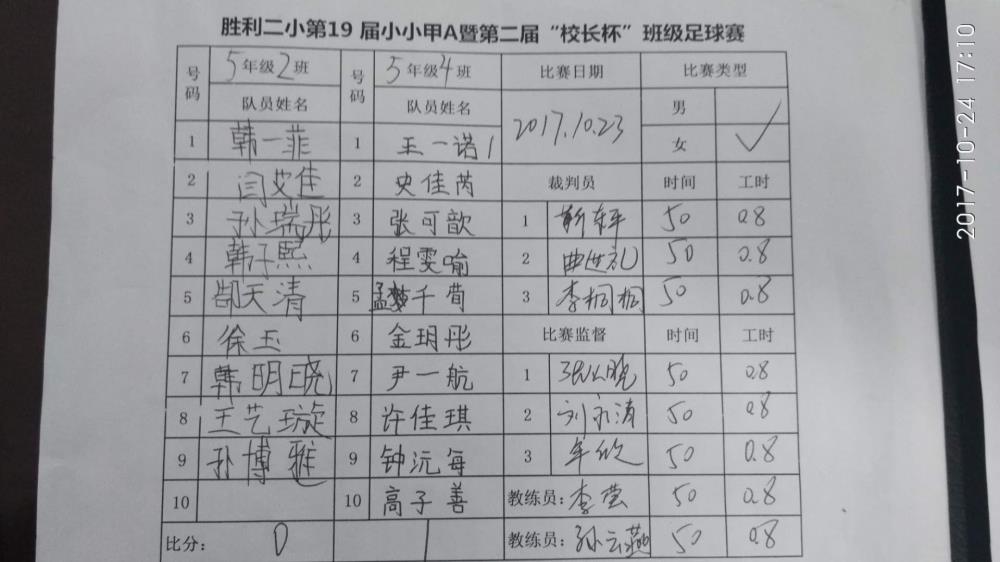 胜利二小第19 届小小甲A暨第二届“校长杯”班级足球赛
号码 5年级2班 号码 5年级4班 比赛日期 比赛类型
队员姓名 队员姓名 2017.10.23 男
1 韩一菲 1 王一诺1 女 ✓
2 闫艾佳 2 史佳芮 裁判员 时间 工时
3 孙瑞彤 3 张可歆 1 靳 50 0.8
4 韩子熙 4 程雯喻 2 曲世礼 50 0.8
5 郜天清 5 孟千荀 3 李桐桐 50 0.8
6 徐玉 6 金玥彤 比赛监督 时间 工时
7 韩明晓 7 尹一航 1 50 0.8
8 王艺璇 8 许佳琪 2 刘永涛 50 0.8
9 孙博雅 9 钟沅每 3 牟欣 50 0.8
10 10 高子善 教练员：李莹 50 0.8
比分： 0 1 教练员：孙云燕 50 0.8
2017-10-24 17:10